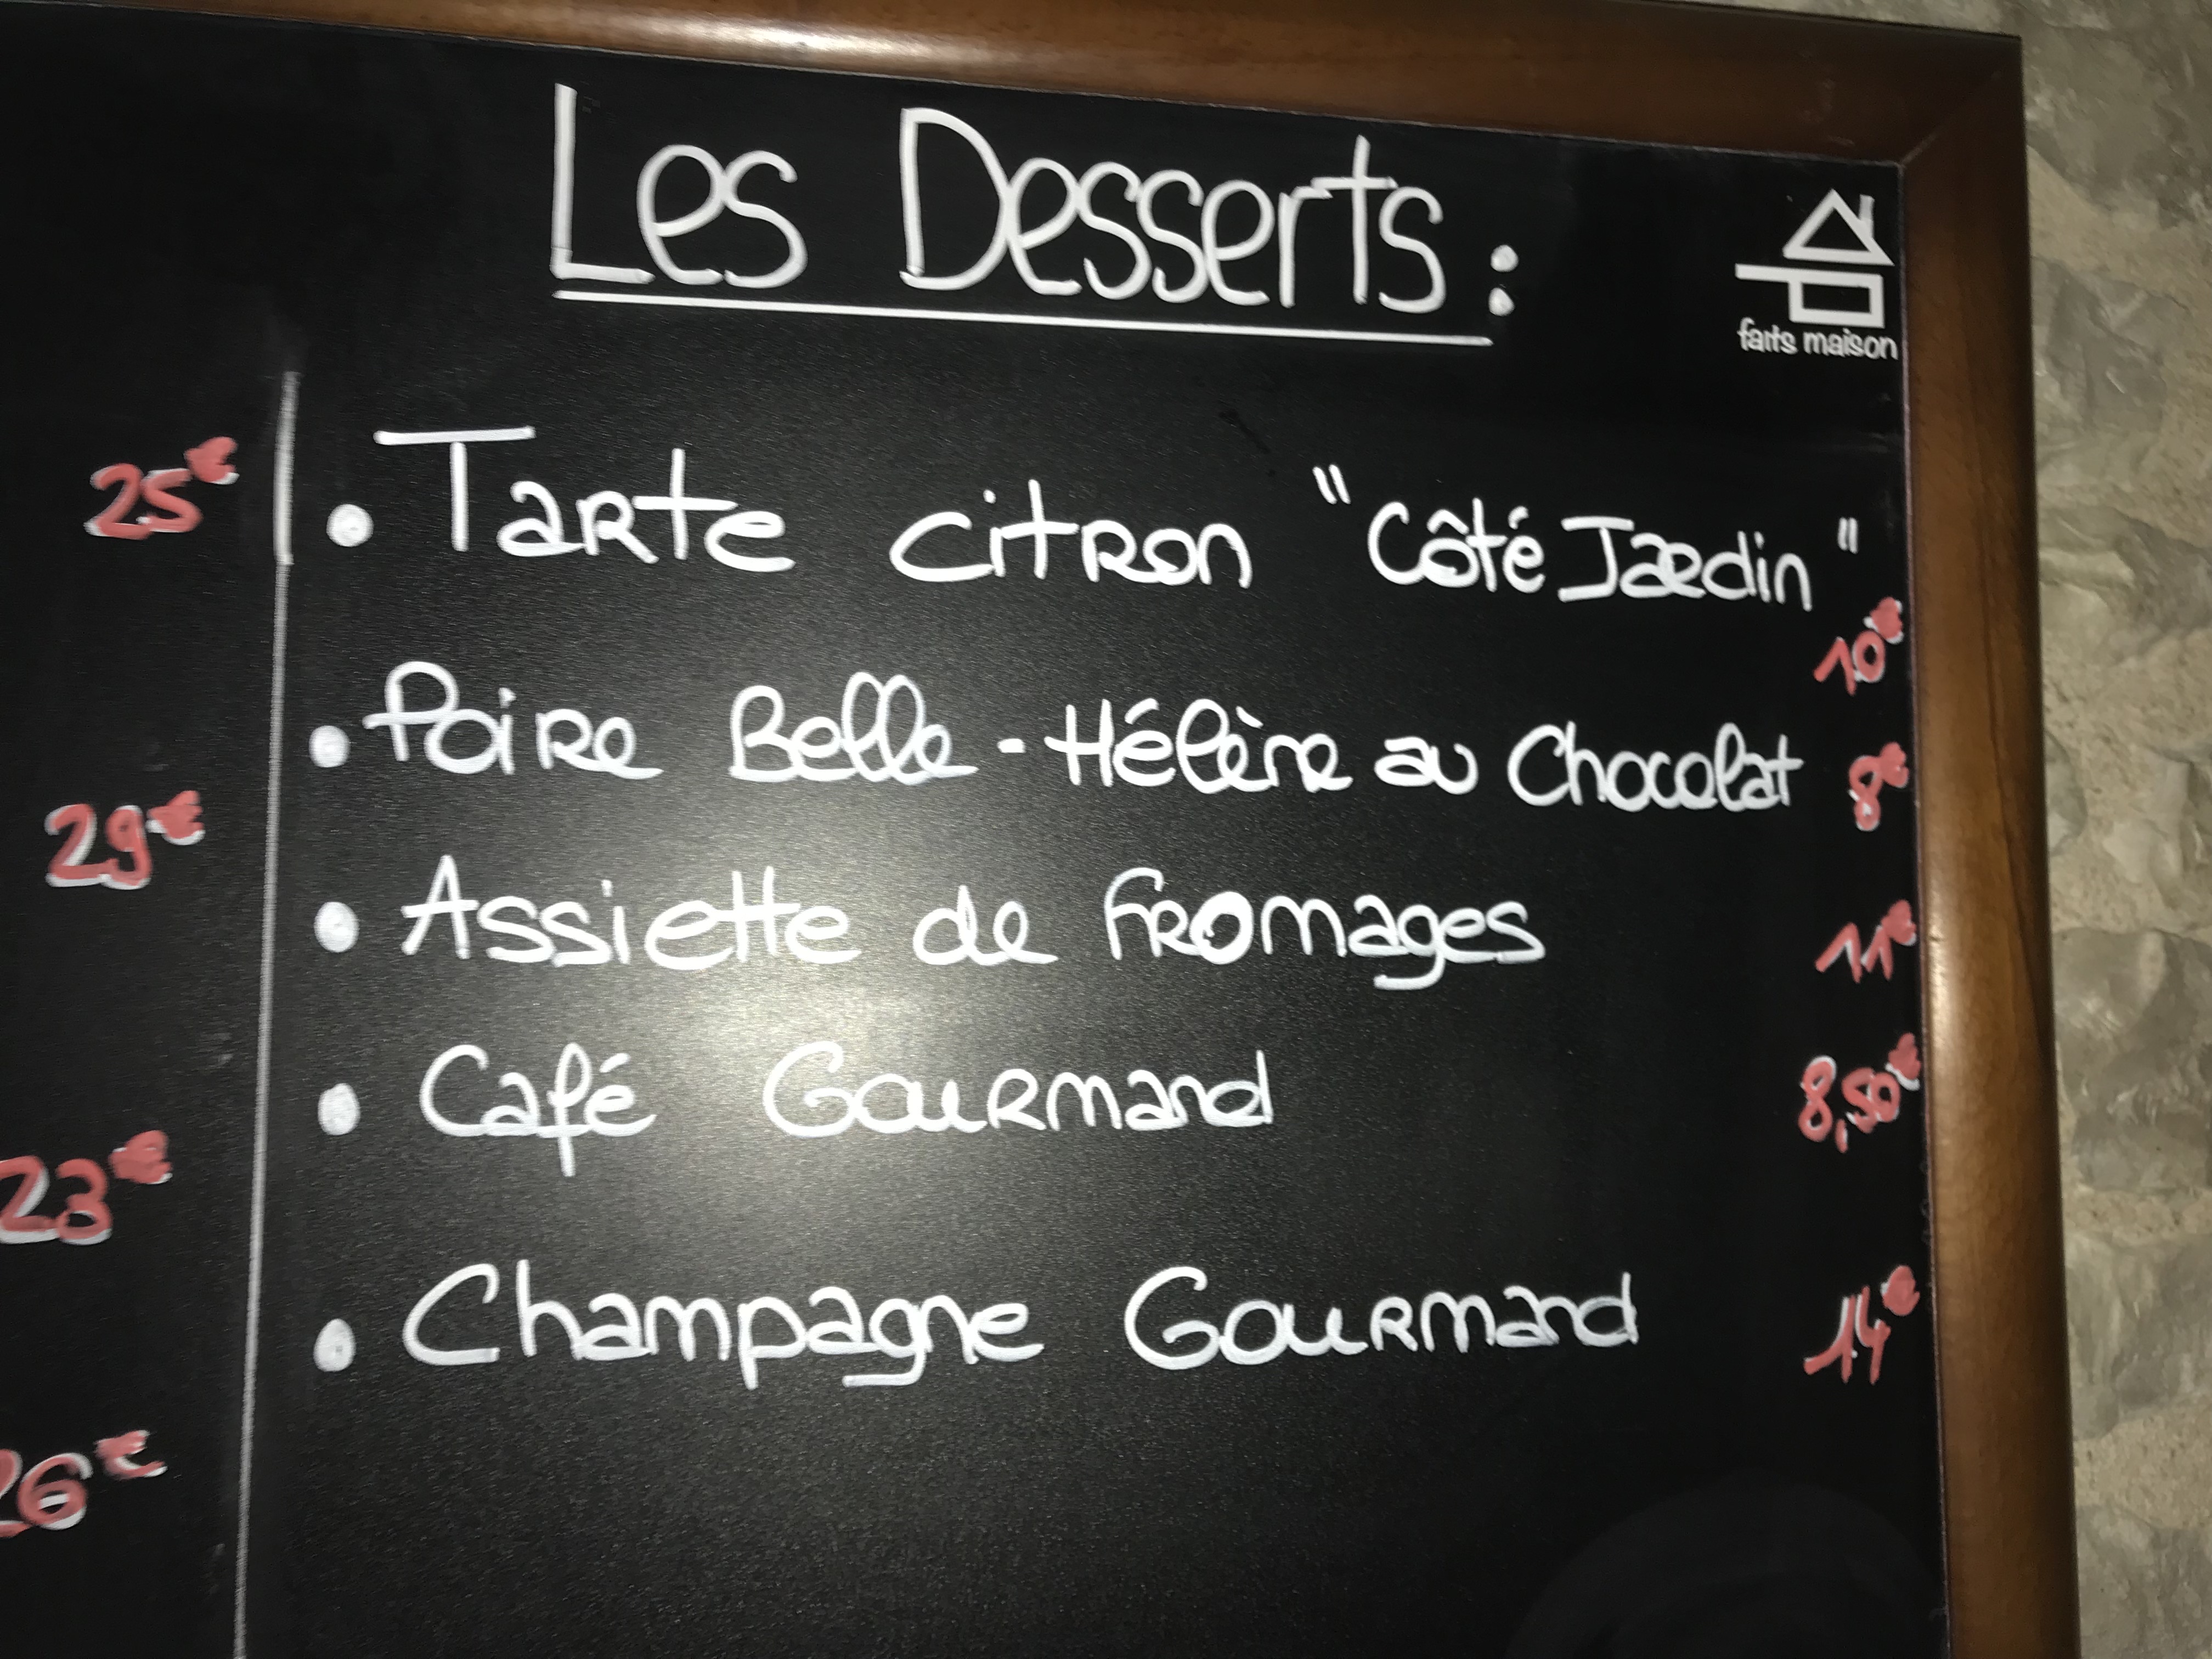 Les Desserts :
faits maison
25€
• Tarte citron "Côté Jardin"
10€
• Poire Belle-Hélène au Chocolat 8€
29€
• Assiette de fromages 11€
• Café Gourmand 8,50€
23€
• Champagne Gourmand 14€
26€